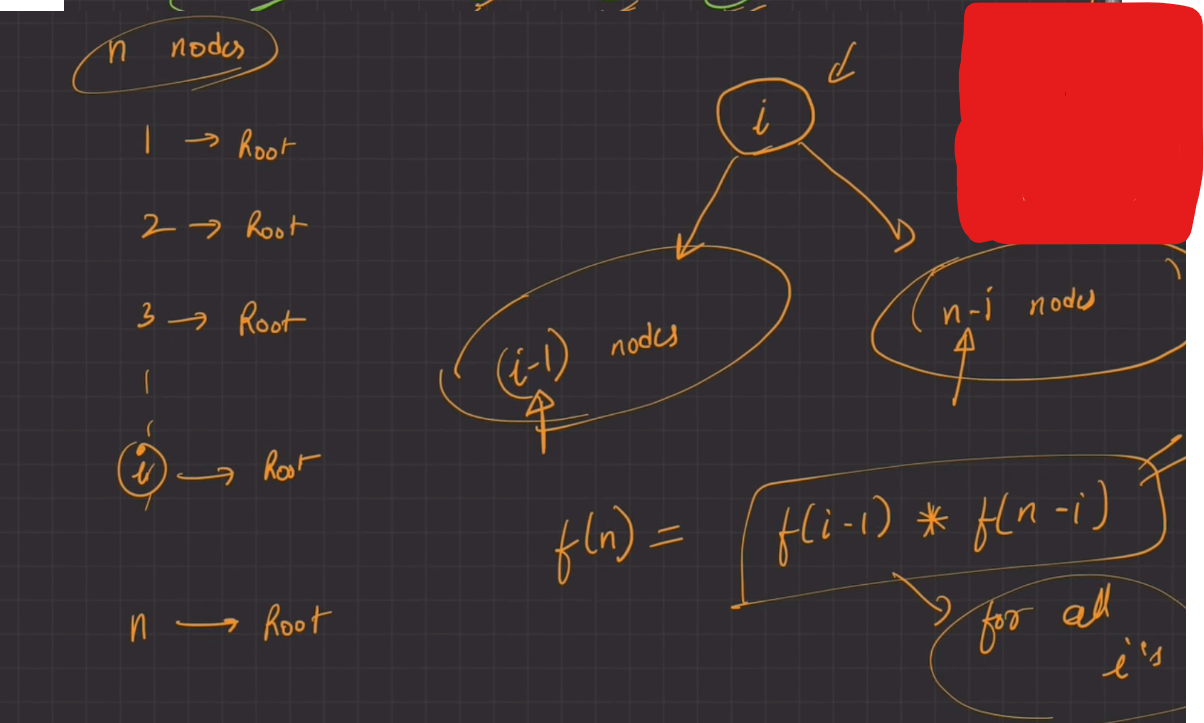 n nodes
1 → Root
2 → Root
3 → Root
i → Root
n → Root
i
(i-1) nodes
(n-i nodes)
f(n) = f(i-1) * f(n-i)
for all
i's